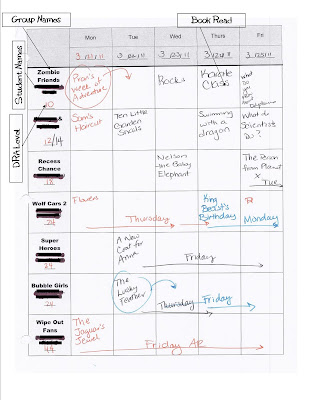 Group Names
Book Read
Student Names
DRA Level
Mon
Tues
Wed
Thurs
Fri
3/21/11
3/22/11
3/23/11
3/24/11
3/25/11
Zombie
Friends
10
Pran's
Week of
Adventure
Rocks
Karate
Class
What
do
you
&
12/14
Sam's
Haircut
Ten Little
Garden
Snails
Swimming
with a
dragon
What do
Scientist
Do?
Recess
Chance
18
Nelson
the Baby
Elephant
The Bean
from Planet
X
Tue
Wolf Cars 2
24
Flowers
Thursday
King
Beast's
Birthday
R
Monday
Super
Heroes
24
A New
Coat for
Anna
Friday
Bubble Girls
24
The
Lucky
Feather
Thursday
Friday
Wipe Out
Fans
44
The
Jaguar's
Jewel
Friday AR